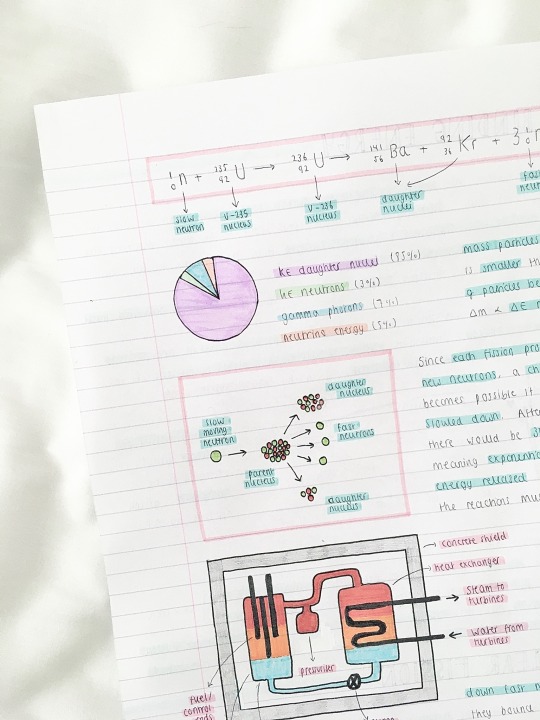 ¹₀n + ²³⁵₉₂U → ²³⁶₉₂U → ¹⁴¹₅₆Ba + ⁹²₃₆Kr + 3¹₀n
slow neutron
U-235 nucleus
U-236 nucleus
daughter nuclei
KE daughter nuclei (85%)
KE neutrons (3%)
gamma photons (7%)
neutrino energy (5%)
mass particles
is smaller
of particles
Δm ∝ ΔE
slow
moving
neutron
parent
nucleus
daughter
nucleus
fast
neutrons
daughter
nucleus
Since each fission
new neutrons, a
becomes possible
slowed down.
there would be
meaning
energy released
the reactions
concrete shield
heat exchanger
steam to
turbines
water from
turbines
pressuriser
fuel/
control
down fast
they bound